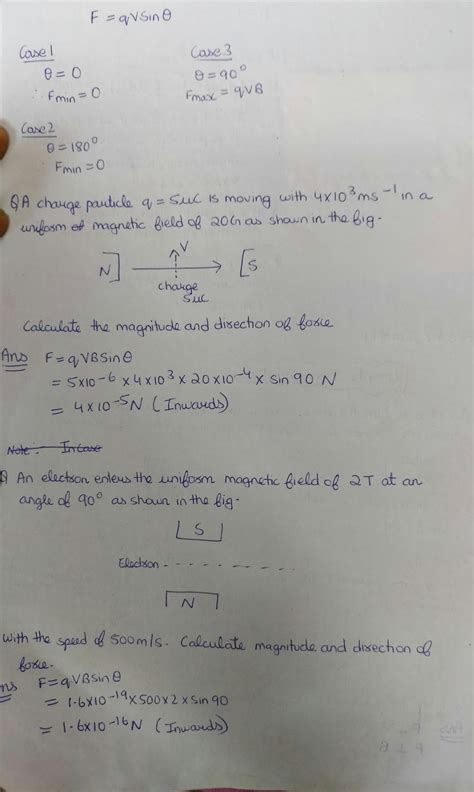 F = qVSinθ
Case 1
θ = 0
∴ Fmin = 0
Case 3
θ = 90°
Fmax = qVB
Case 2
θ = 180°
Fmin = 0
Q A charge particle q = 5uC is moving with 4x10³ms⁻¹ in a
uniform of magnetic field of 20G as shown in the fig.
V
N
S
charge
5uC
Calculate the magnitude and direction of force
Ans F = qVBSinθ
= 5x10⁻⁶ x 4x10³ x 20x10⁻⁴ x sin 90 N
= 4x10⁻⁵N (Inwards)
Note: Incase
An electron enters the uniform magnetic field of 2T at an
angle of 90° as shown in the fig.
S
Electron
N
with the speed of 500m/s. Calculate magnitude and direction of
force.
ns F = qVBSinθ
= 1.6x10⁻¹⁹x500x2xSin90
= 1.6x10⁻¹⁶N (Inwards)